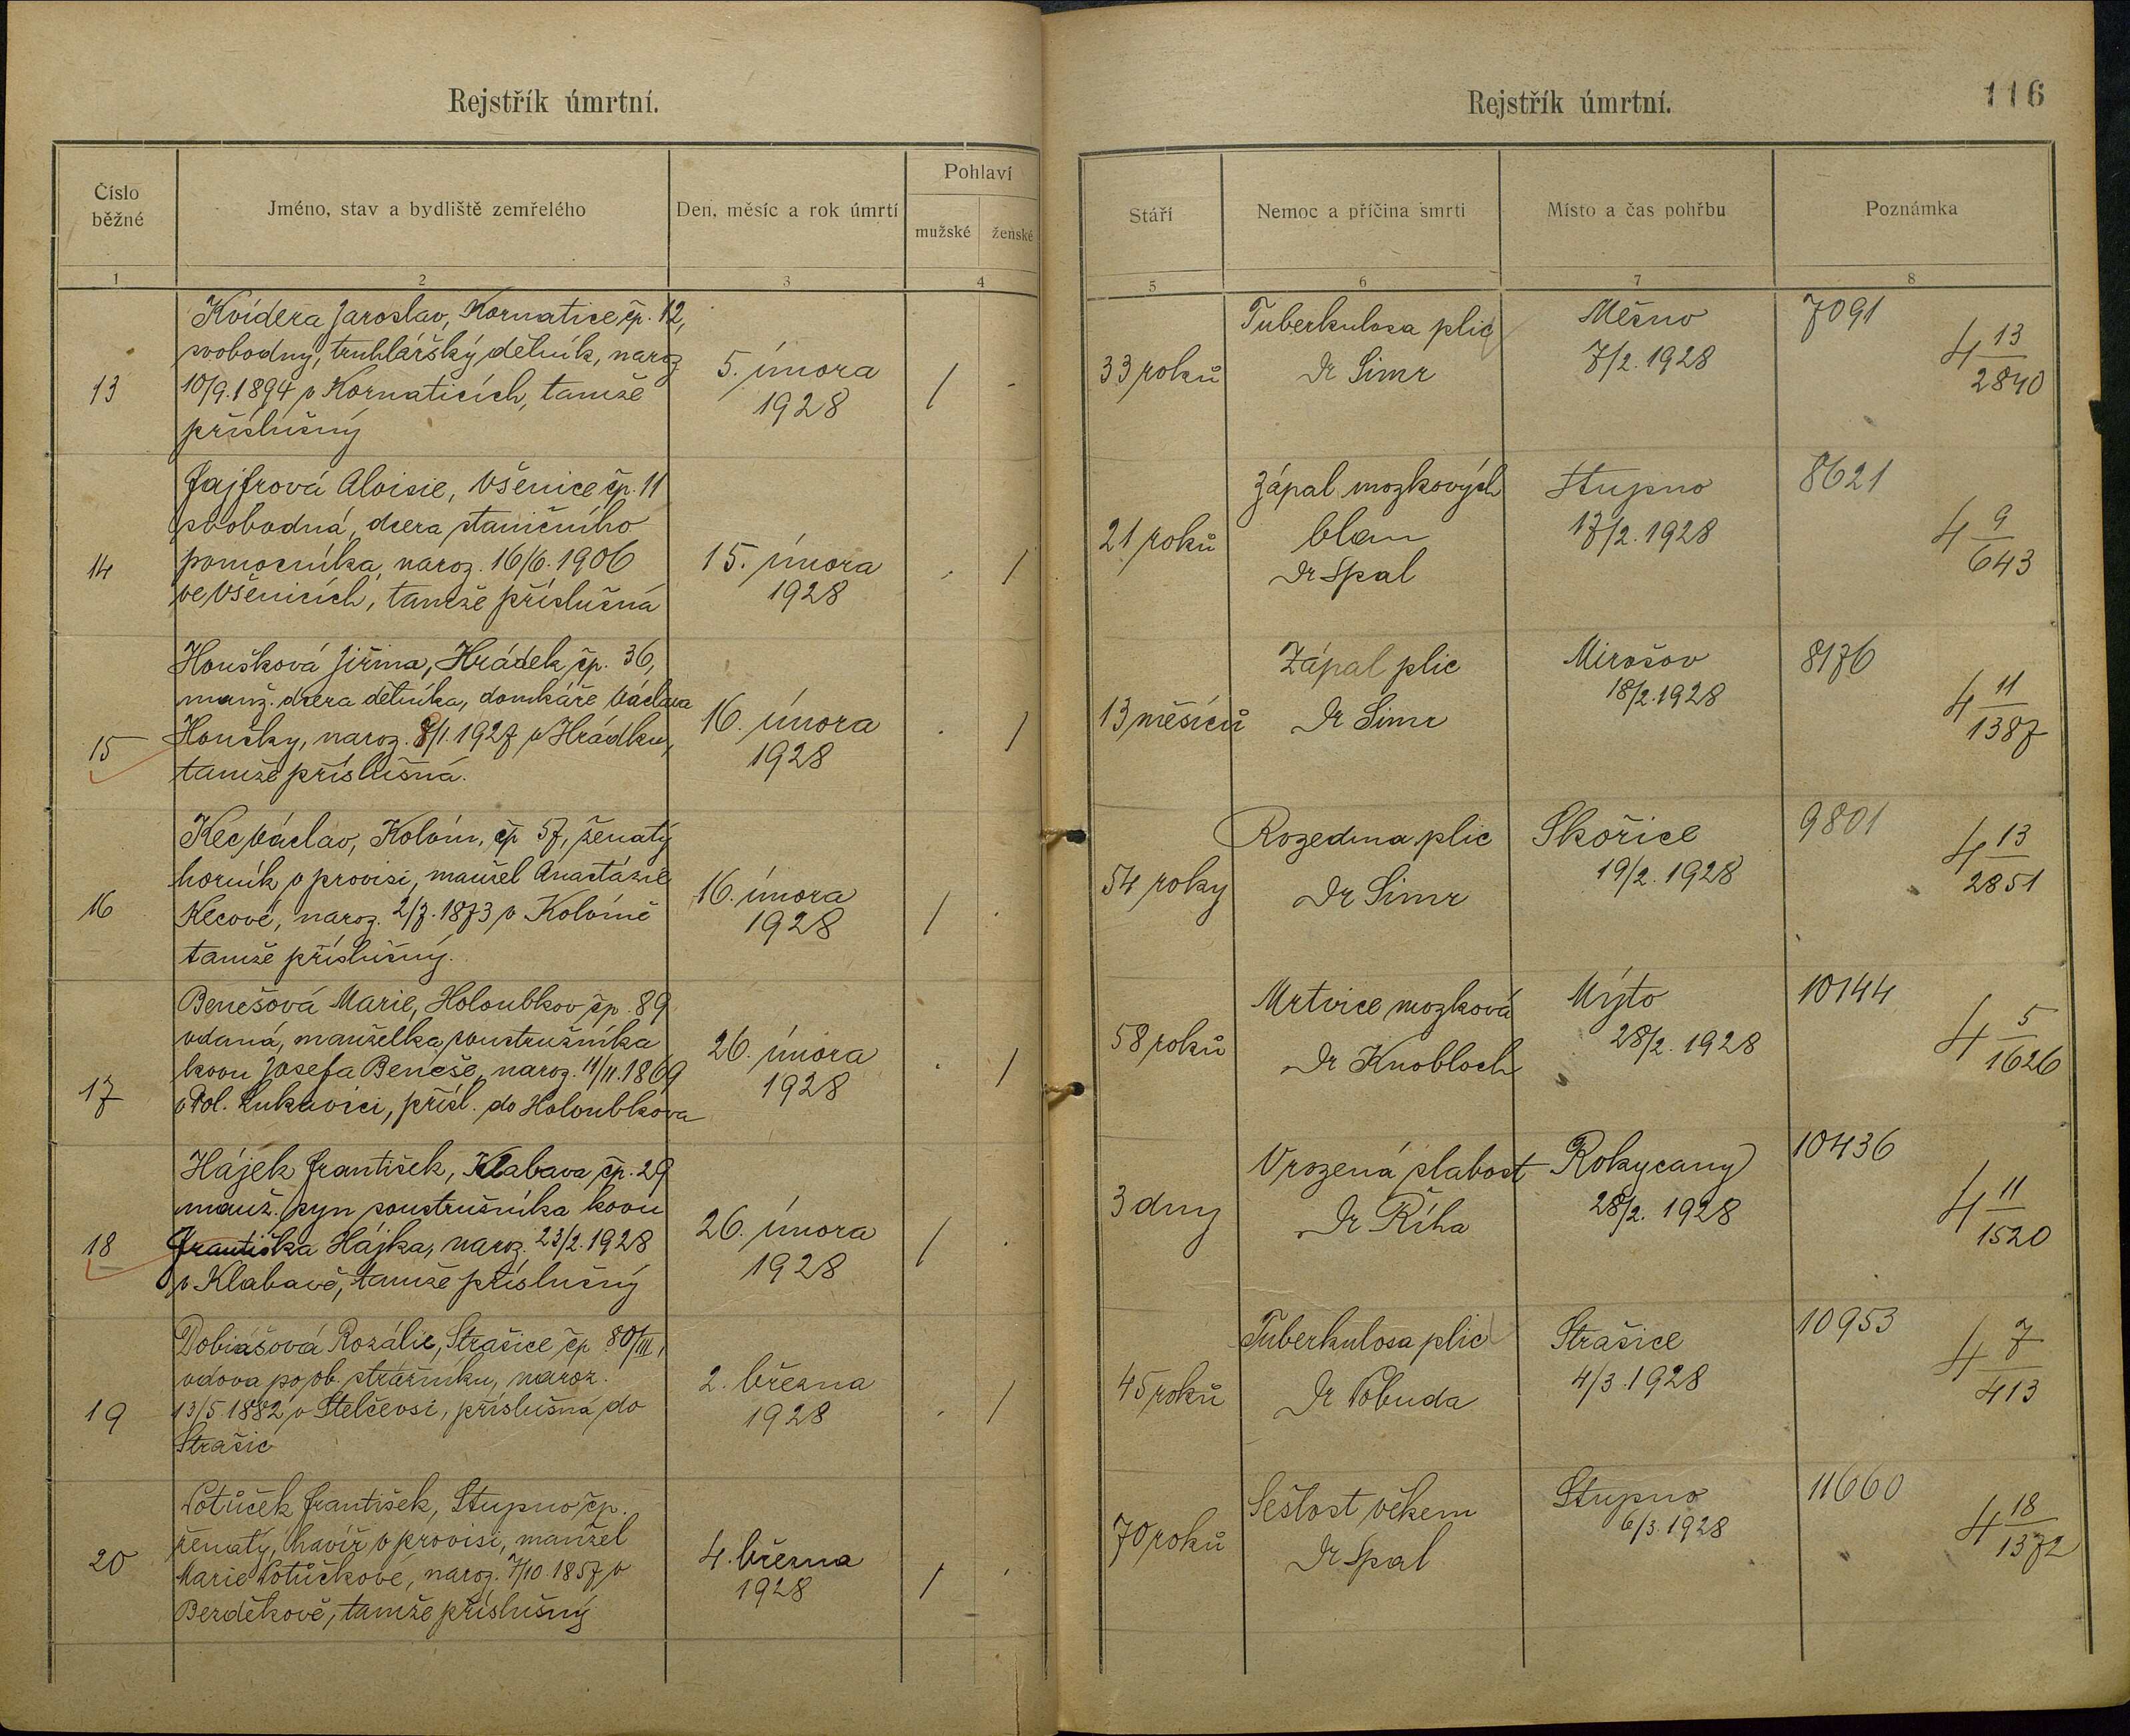 Rejstřík úmrtní.
Číslo běžné
Jméno, stav a bydliště zemřelého
Den, měsíc a rok úmrtí
Pohlaví
mužské
ženské
1
2
3
4
13
Kvídera Jaroslav, Kornatice, čp. 12,
svobodny, truhlářský dělník, naroz
10/9. 1894 v Kornaticích, tamže
příslušný
5. února
1928
/
14
Fajfrová Aloisie, Všenice čp. 11
svobodná, dcera staničního
pomocníka, naroz. 16/6. 1906
ve Všenicích, tamže příslušná
15. února
1928
/
15
Houšková Jiřina, Hrádek čp. 36,
manž. dcera dělníka, domkáře Václava
Houšky, naroz. 8/1. 1927 v Hrádku,
tamže příslušná.
16. února
1928
/
16
Kec Václav, Kolvín, čp 57, ženatý
horník v provisi, manžel Anastázie
Kecové, naroz. 2/7. 1873 v Kolvíně
tamže příslušný.
16. února
1928
/
17
Benešová Marie, Holoubkov čp. 89
vdaná, manželka soustružníka
kovu Josefa Beneše, naroz. 11/11. 1869
v Dol. Lukavici, přísl. do Holoubkova
26. února
1928
/
18
Hájek František, Klabava čp. 29
manž. syn soustružníka kovu
Františka Hájka, naroz. 23/2. 1928
v Klabavě, tamže příslušný
26. února
1928
/
19
Dobiášová Rozálie, Strašice čp. 80/III,
vdova po ob. strážníku, naroz.
13/5. 1882 v Stelčevsi, příslušná do
Strašic
2. března
1928
/
20
Lotůček František, Stupno čp.
ženatý, havíř v provisi, manžel
Marie Lotůčkové, naroz. 7/10. 1857 v
Bezděkově, tamže příslušný
4. března
1928
/
Rejstřík úmrtní.
116
Stáří
Nemoc a příčina smrti
Místo a čas pohřbu
Poznámka
5
6
7
8
33 roků
Tuberkulosa plic
Dr Simr
Měšno
7/2. 1928
7091
4 13/2840
21 roků
Zápal mozkových
blan
Dr Spal
Stupno
17/2. 1928
8621
4 9/643
13 měsíců
Zápal plic
Dr Simr
Mirošov
18/2. 1928
8176
4 11/1387
54 roky
Rozedma plic
Dr Simr
Skořice
19/2. 1928
9801
4 13/2851
58 roků
Mrtvice mozková
Dr Knobloch
Mýto
28/2. 1928
10144
4 5/1626
3 dny
Vrozená slabost
Dr Říha
Rokycany
28/2. 1928
10436
4 11/1520
45 roků
Tuberkulosa plic
Dr Pobuda
Strašice
4/3. 1928
10953
4 7/413
70 roků
Sešlost věkem
Dr Spal
Stupno
6/3. 1928
11660
4 18/1372